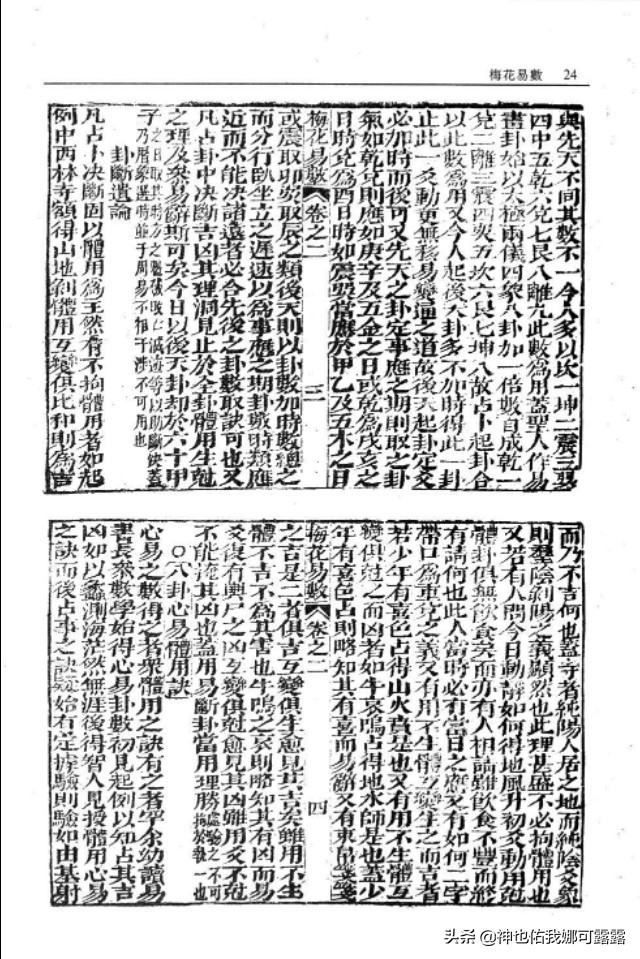 梅花易數 24
與先天不同其數不一今人多以坎一坤二震三巽
四中五乾六兌七艮八離九此數為用蓋聖人作易
畫卦始以太極兩儀四象八卦加一倍數自成乾一
兌二離三震四巽五坎六艮七坤八故占卜起卦合
以此數為用又今人起後天卦多不加時得此一卦
止此一爻動更無移易變通之道故後天起卦定爻
必加時而後可又先天之卦定事應之期則取之卦
氣如乾兌則應如庚辛及五金之日或乾為戌亥之
日時兌為酉日時如震巽當應於甲乙及五木之日
梅花易數 卷之二 三
或震取卯巽取辰之類後天則以卦數加時數總之
而分行臥坐立之遲速以為事應之期卦數時類應
近而不能决諸遠者必合先後之卦數取訣可也又
凡占卦中决斷吉凶其理洞見止於全卦體用生尅
之理及衆易辭斯可矣今日以後天卦却於六十甲
子之日取其時方之魁破敗亡滅迹等以助斷訣蓋
乃曆象選時並于周易不相干涉不可用也
卦斷遺論
凡占卜决斷固以體用為主然有不拘體用者如起
例中西林寺額得山地剝體用互變俱比和則為吉
而乃不吉何也蓋寺者純陽人居之地而純陰爻象
則羣陰剝陽之義顯然也此理甚盛不必拘體用也
又若有人問今日動靜如何得地風升初爻動用尅
體卦俱無飲食矣而亦有人相請雖飲食不豐而終
有請何也此人當時必有當日之應又有如何二字
帶口為重兌之義又有用不生體互變生之而吉者
若少年有喜色占得山火賁是也又有用不生體互
變俱尅之而凶者如牛哀鳴占得地水師是也蓋少
年有喜色占則略知其有喜而易辭又有束帛戔戔
梅花易數 卷之二 四
之吉是二者俱吉互變俱生愈見其吉矣雖用不生
體不吉不為其害也牛鳴之哀則略知其有凶而易
爻復有輿尸之凶互變俱尅愈見其凶雖用爻不尅
不能淹其凶也蓋用易斷卦當用理勝處驗之不可拘於執一也
〇八卦心易體用訣
心易之數得之者衆體用之訣有之者罕余幼讀易
書長叅數學始得心易卦數初見起例以知占其吉
凶如以蠡測海茫然無涯後得智人見授體用心易
之訣而後占事之訣疑始有定據驗則驗如由基射
头条 @神也佑我娜可露露